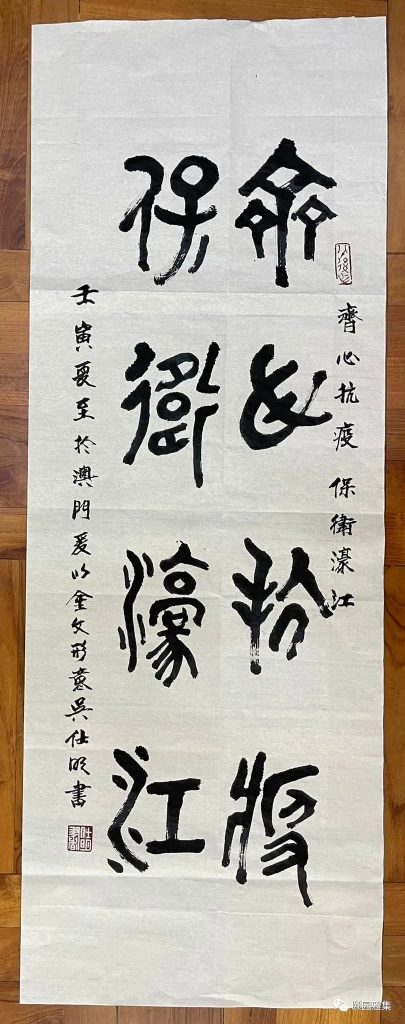 齊心抗疫 保衛濠江
齊心抗疫
保衛濠江
壬寅夏至於澳門爰以金文形意吳仕明書
仕明
頤園雅集